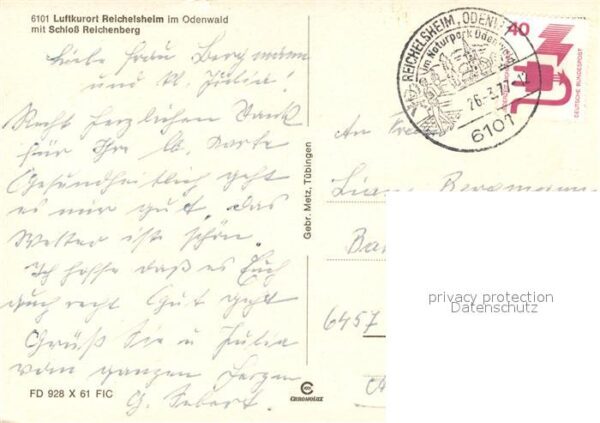 6101 Luftkurort Reichelsheim im Odenwald
mit Schloß Reichenberg
Liebe Frau Bergmann
und kl. Julia!
Recht herzlichen Dank
für Ihre lb. Karte
Gesundheitlich geht
es mir gut das
Wetter ist schön.
Ich hoffe daß es Euch
auch recht Gut geht
Grüß Sie u Julia
vom ganzen Herzen
G.
FD 928 X 61 FIC
CHROMOLUX
Gebr. Metz, Tübingen
REICHELSHEIM, ODENW
im Naturpark Odenwald
26.3.77-12
6101
40
DEUTSCHE BUNDESPOST
An
Bergmann
Ba
6457
privacy protection
Datenschutz